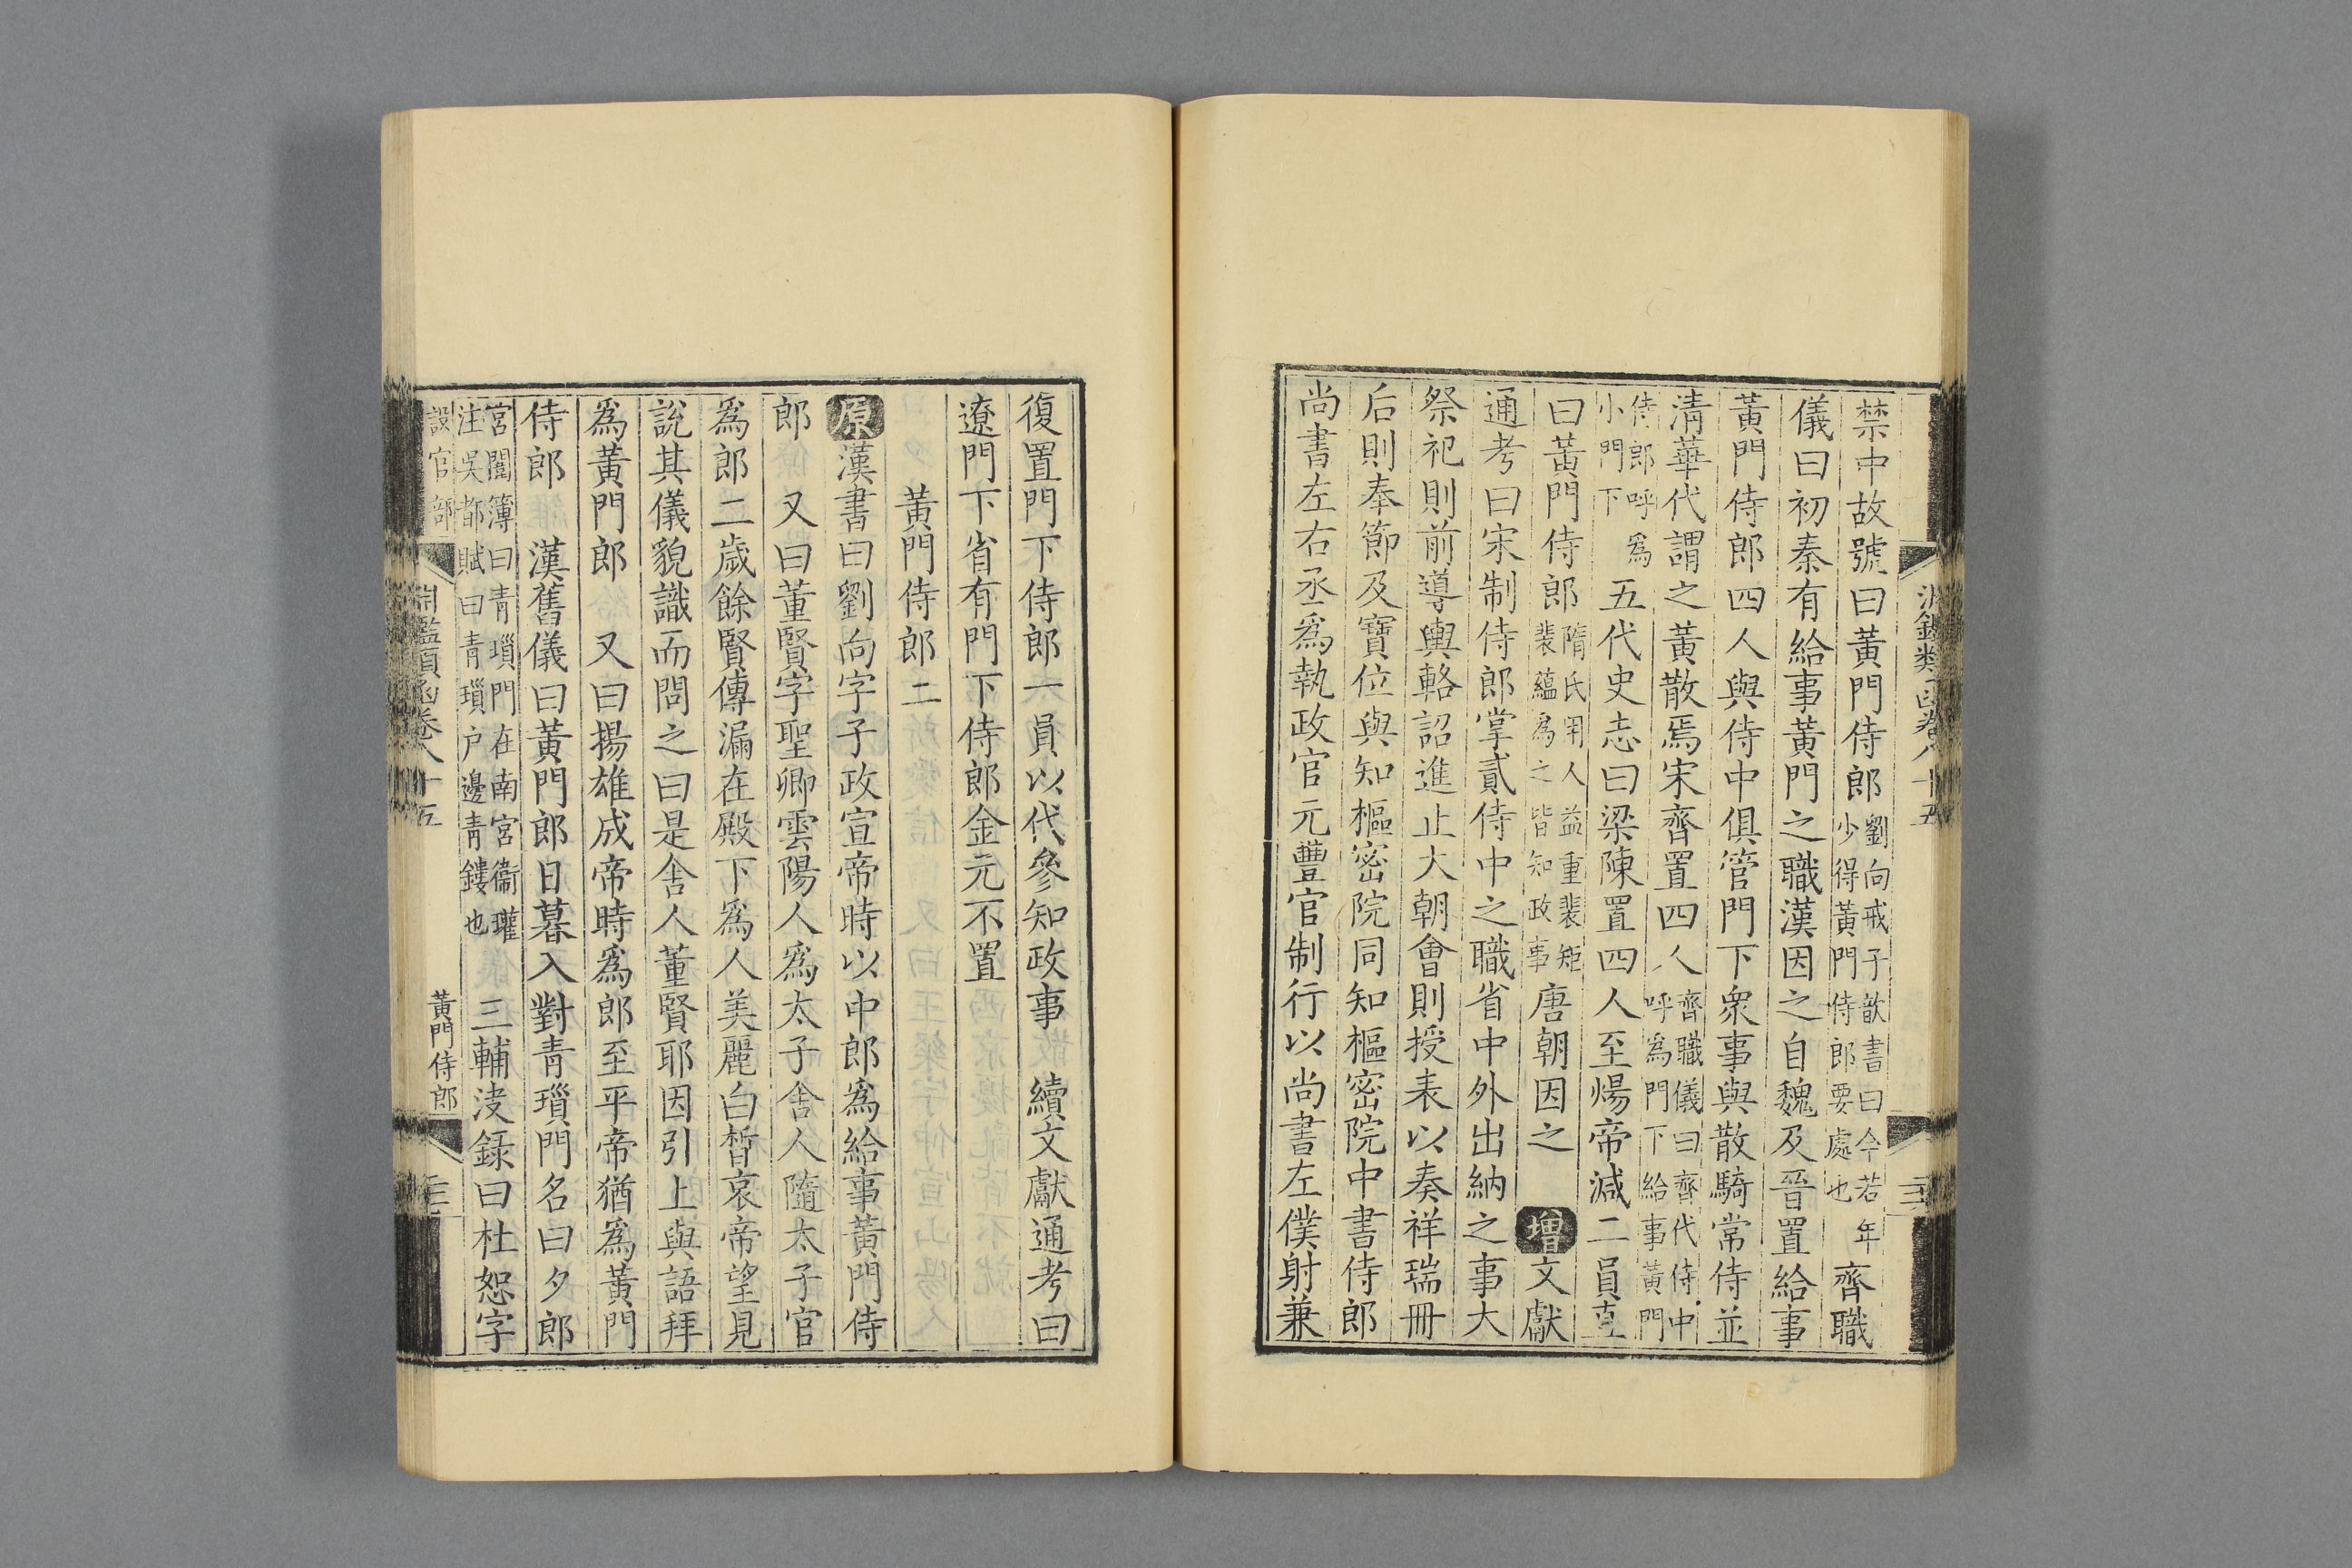 禁中故號曰黃門侍郎劉向戒子歆書曰今若年少得黃門侍郎要處也齊職
儀曰初秦有給事黃門之職漢因之自魏及晉置給事
黃門侍郎四人與侍中俱管門下衆事與散騎常侍並
清華代謂之黃散焉宋齊置四人齊職儀曰齊代侍中呼爲門下給事黃門
侍郎呼爲小門下五代史志曰梁陳置四人至煬帝減二員直
曰黃門侍郎隋氏用人益重裴矩裴蘊爲之皆知政事唐朝因之 增文獻
通考曰宋制侍郎掌貳侍中之職省中外出納之事大
祭祀則前導輿輅詔進止大朝會則授表以奏祥瑞冊
后則奉節及寶位與知樞密院同知樞密院中書侍郎
尚書左右丞爲執政官元豐官制行以尚書左僕射兼
淵鑑類函卷八十五
復置門下侍郎一員以代參知政事 續文獻通考曰
遼門下省有門下侍郎金元不置
黃門侍郎二
原漢書曰劉向字子政宣帝時以中郎爲給事黃門侍
郎 又曰董賢字聖卿雲陽人爲太子舍人隨太子官
爲郎二歲餘賢傳漏在殿下爲人美麗白晳哀帝望見
說其儀貌識而問之曰是舍人董賢耶因引上與語拜
爲黃門郎 又曰揚雄成帝時爲郎至平帝猶爲黃門
侍郎 漢舊儀曰黃門郎日暮入對青瑣門名曰夕郎
宮閣簿曰青瑣門在南宮衞瓘注吳都賦曰青瑣户邊青鏤也 三輔决録曰杜恕字
設官部
淵鑑類函卷八十五
黃門侍郎